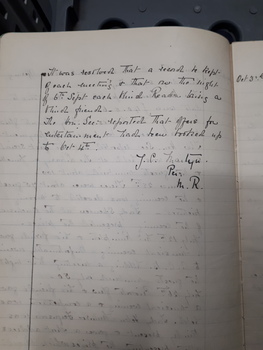 It was resolved that a record be kept
of each meeting & that on the night
of 6th Sept each Blind Reader bring a
blind friend.
The Hon Sec. reported that offers for
entertainments had been booked up
to Oct 4th.
J. E.
M. R.
Oct 3rd